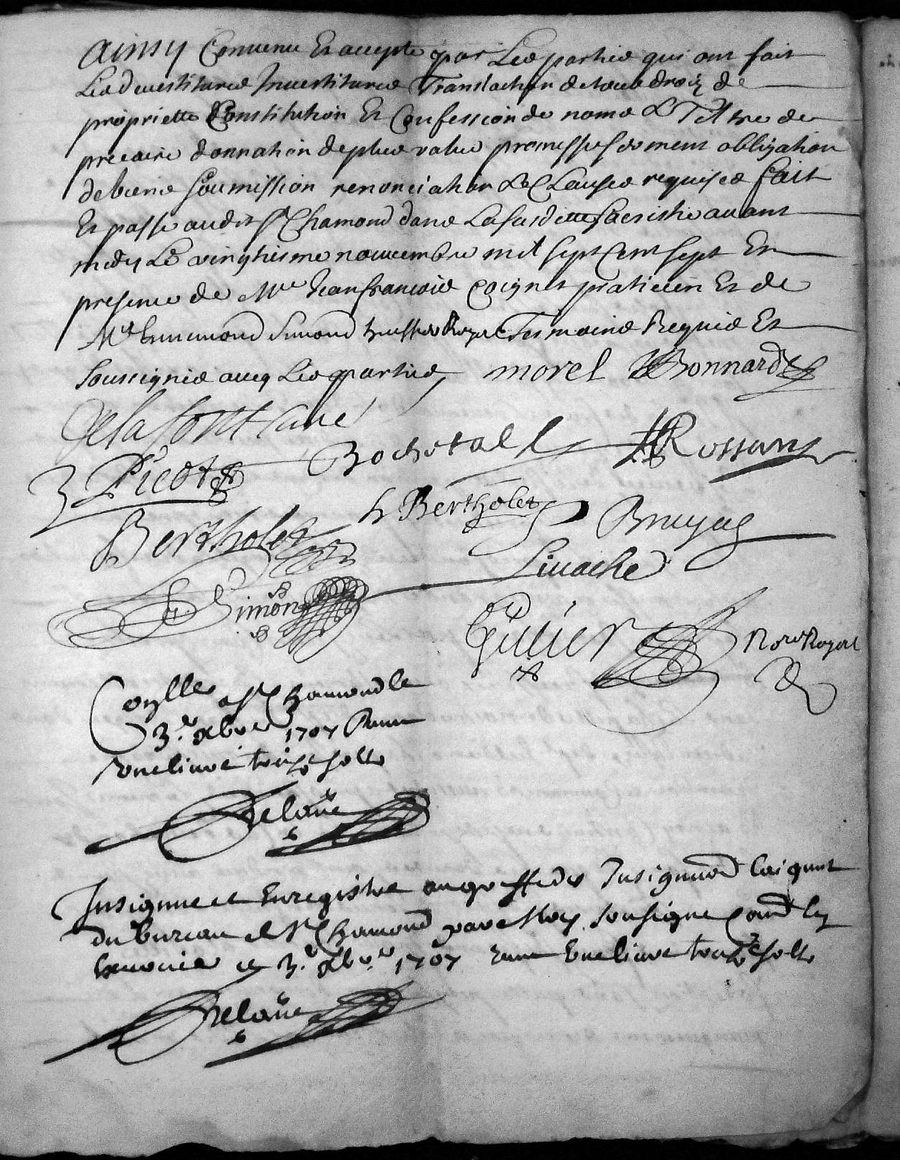 ainsy Convenu Et accepté par Les partie qui ont fait
Les devestitures Investitures Translation de tous droiz de
propriette Constitution Et Confession de nome Et Tiltre de
precaire donnation de plus value promisses serment obligation
de biens soumission renonciation Et Clauses requises fait
Et passé audit St Chamond dans La susditte sacristie avant
midy Le vingtiesme nouvembre mil sept Cent sept En
presence de Me Jean francois Coignet praticien Et de
Me Ennemond Simond huissier Royal Tesmoins Requis Et
soussignés avecq Les parties, morel Bonnard
delafontaine
Picot Bochetall Rossary
Bertholet h Bertholet Bruyas
Simon Livache
Gillier Nore Royal
Conlle a St Chamond le
3e xbre 1707 Receu
une livre trois solz
Delaüe
Insignue et Enregistré au greffe des Insignuaons
du bureau de St Chamond par Moy sousigne
ce 3e xbre 1707 receu une livre trois solz
Delaüe